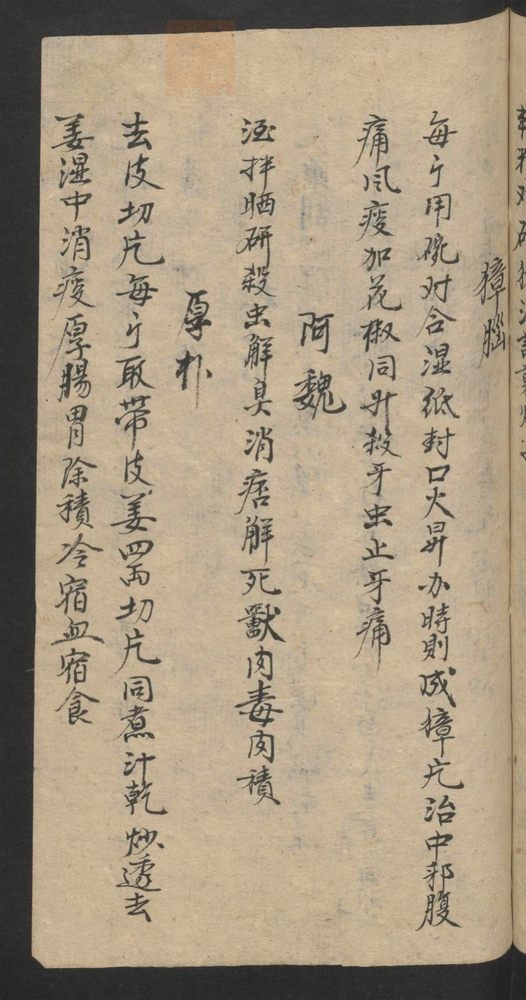 獐腦
每斤用碗对合湿紙封口火昇办時則成獐片治中邪腹
痛风痰加花椒同升殺牙虫止牙痛
阿魏
酒拌晒研殺虫解臭消痞解死獸肉毒肉積
厚朴
去皮切片每斤取帶皮姜四両切片同煮汁乾炒透去
姜湿中消痰厚腸胃除積冷宿血宿食